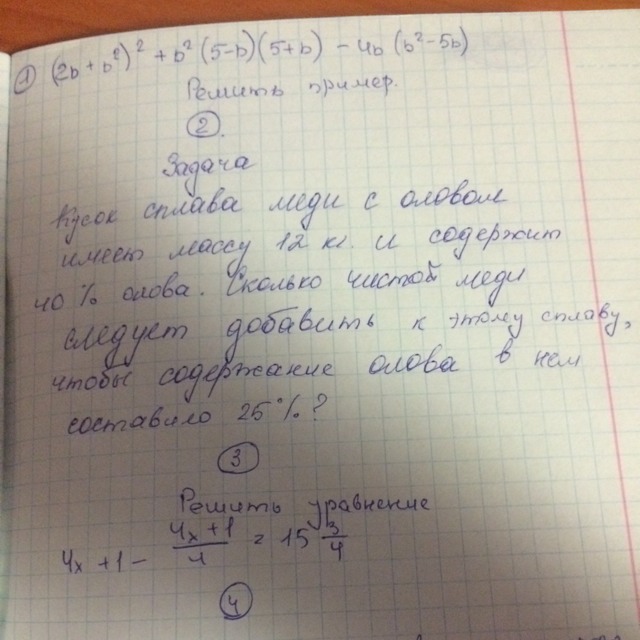 ① (2b + b²)² + b² (5-b)(5+b) - 4b (b² - 5b)
Решить пример.
②.
Задача
Кусок сплава меди с оловом
имеет массу 12 кг. и содержит
40 % олова. Сколько чистой меди
следует добавить к этому сплаву,
чтобы содержание олова в нем
составило 25 %?
③
Решить уравнение
4x + 1 - (4x + 1)/4 = 15 3/4
④